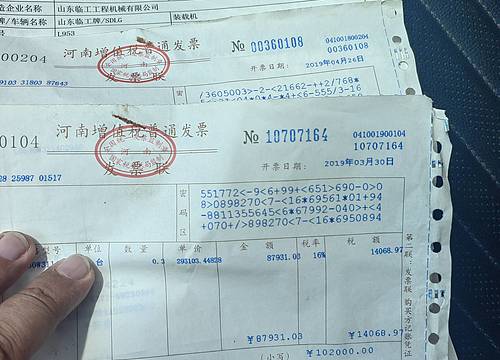 造企业名称 山东临工工程机械有限公司
牌/车辆名称 山东临工牌/SDLG 装载机
L953
00204 河南增值税普通发票 № 00360108 041001800204
00360108
开票日期: 2019年04月26日
发票联
9103 31803 87643
密
0104 河南增值税普通发票 № 10707164 041001900104
10707164
发票联 开票日期: 2019年03月30日
28 25987 01517
密码区
551772<-9<6+99+<651>690-0>0
8>0898270<7-<16*69561*01+94
-8811355645<6*67992-040>+<4
+070+/>898270<7-<16*6950894
型号 单位 数量 单价 金额 税率 税额
台 0.3 293103.44828 87931.03 16% 14068.97
¥87931.03 ¥14068.97
(小写) ¥102000.00
第二联:发票联 购买方记账凭证